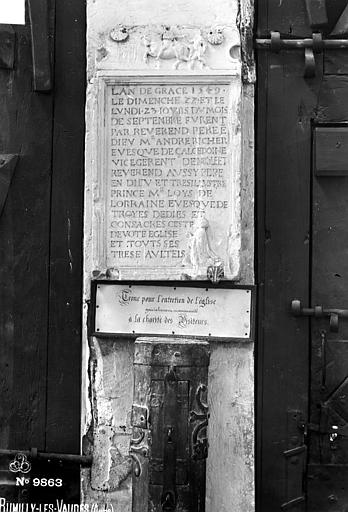 LAN DE GRACE 1549.
LE DIMENCHE 22 ET LE
LVNDI 23 IOVRS DV MOIS
DE SEPTENBRE FVRENT
PAR REVEREND PERE Ē
DIEV Mʳ ANDRE RICHER
EVESQVE DE CALCEDOINE
VICEGERENT DE
REVEREND AVSSY PERE
EN DIEV ET TRESILLVSTRE
PRINCE Mʳ LOYS DE
LORRAINE EVESQVE DE
TROYES DEDIES ET
CONSACRES CESTE
DEVOTE EGLISE
ET TOVTS SES
TRESE AVLTELS
Tronc pour l'entretien de l'église
à la charité des Visiteurs.
N° 9863
RUMILLY-LES-VAUDES (Aube)